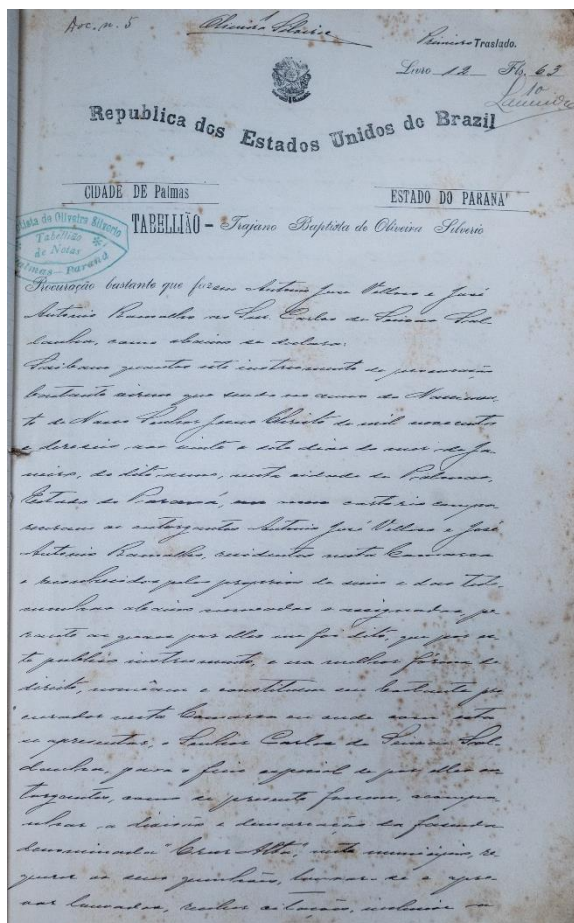 Doc. n. 5
Oliveira Silverio
Primeiro Traslado.
Livro 12 Fls. 63
10
Republica dos Estados Unidos do Brazil
CIDADE DE Palmas
ESTADO DO PARANA'
TABELLIÃO - Trajano Baptista de Oliveira Silverio
tista de Oliveira Silverio
Tabellião
de Notas
Palmas - Paraná
Procuração bastante que fazem Antonio José Velloso e José
Antonio Ramalho ao Snr. Carlos de Saldanha, como abaixo se declara:
Saibam quantos este instrumento de procuração
bastante virem que sendo no anno do Nascimen-
to de Nosso Senhor Jesus Christo de mil novecentos
e dezeseis, aos vinte e oito dias do mez de Ja-
neiro, do dito anno, nesta cidade de Palmas,
Estado do Paraná, em meu cartorio compa-
receram os outorgantes Antonio José Velloso e José
Antonio Ramalho, residentes nesta Comarca
e reconhecidos pelos proprios de mim e das teste-
munhas abaixo nomeadas e assignadas, pe-
rante as quaes por elles me foi dito, que por es-
te publico instrumento, e na melhor fórma de
direito, nomêam e constituem seu bastante pro-
curador nesta Comarca ou onde com esta
se apresentar, o Senhor Carlos de Sal-
danha, para o fim especial de por elles ou-
torgantes, como se presente fossem, acompa-
nhar a divisão e demarcação da fazenda
denominada "Cruz Alta", neste municipio, re-
querer os seus quinhões, louvar-se e appro-
var louvados, receber citação, inclusive a